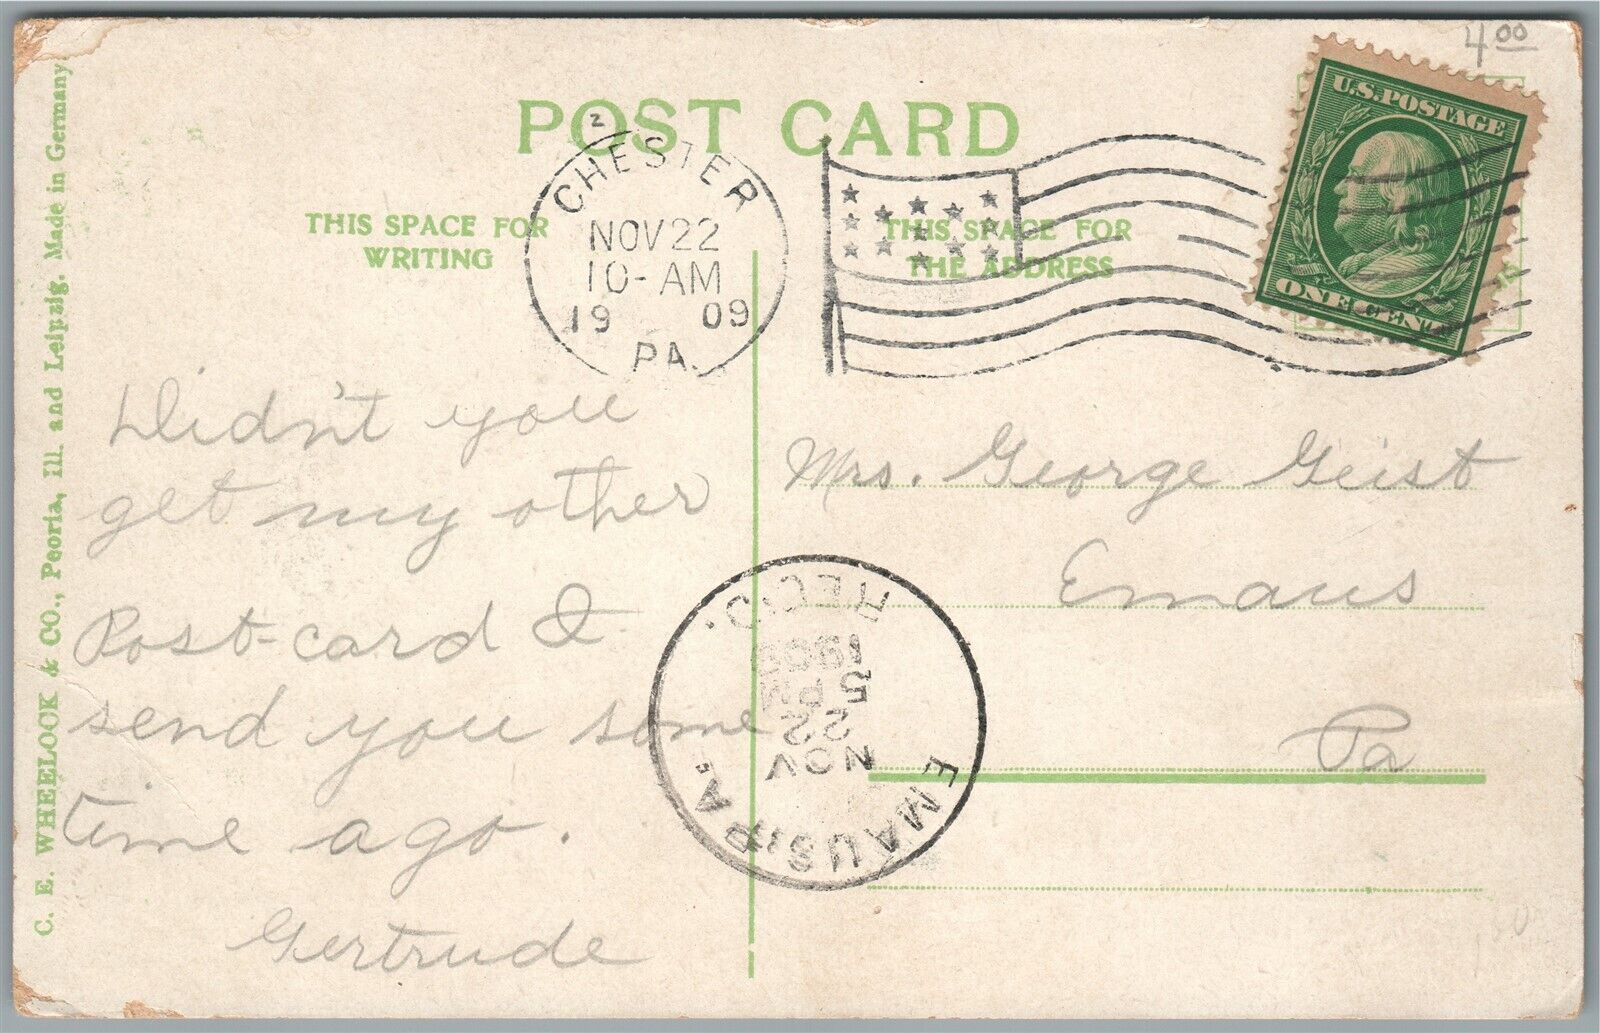 4.00
POST CARD
THIS SPACE FOR
WRITING
THIS SPACE FOR
THE ADDRESS
2
CHESTER
NOV 22
10-AM
19 09
PA.
U.S. POSTAGE
ONE CENT
Didn't you
get my other
Post-card I
send you some
time ago.
Gertrude
Mrs. George Geist
Emaus
Pa
EMAUS, PA.
NOV
22
5 PM
1909
REC'D.
C. E. WHEELOCK & CO., Peoria, Ill. and Leipzig. Made in Germany.